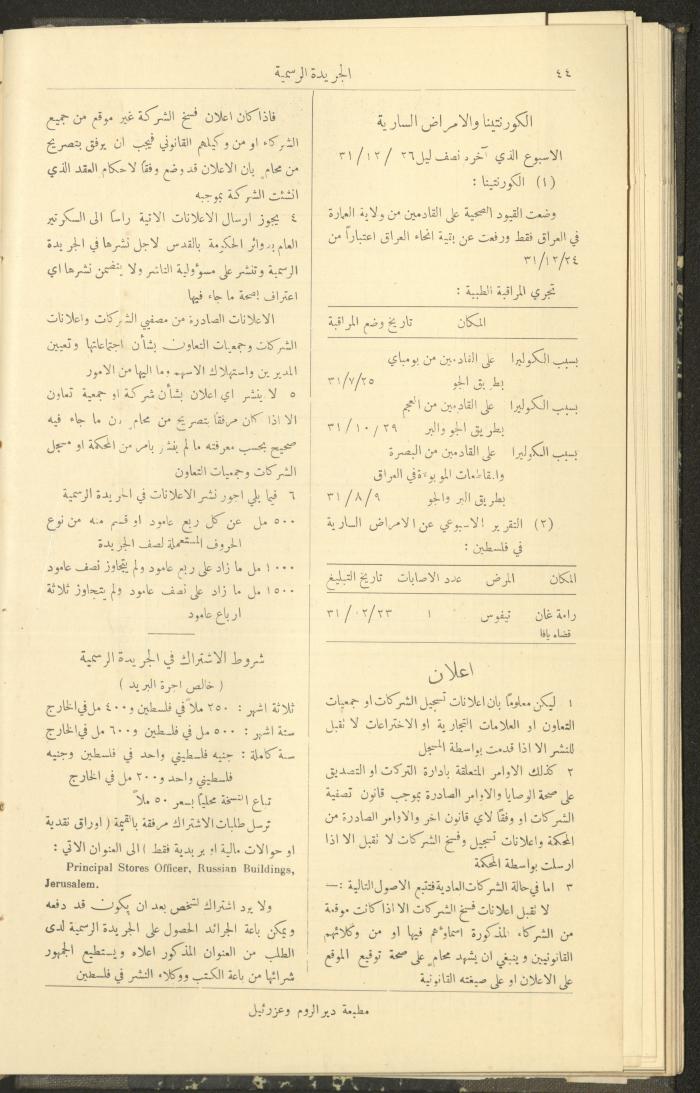 ٤٤
الجريدة الرسمية
الكورنتينا والامراض السارية
الاسبوع الذي آخره نصف ليل ٢٦ / ١٢ / ٣١
(١) الكورنتينا :
وضعت القيود الصحية على القادمين من ولاية العمارة
في العراق فقط ورفعت عن بقية انحاء العراق اعتباراً من
٣١/١٢/٢٤
تجري المراقبة الطبية :
المكان تاريخ وضع المراقبة
بسبب الكوليرا على القادمين من بومباي
بطريق الجو ٣١/٧/٢٥
بسبب الكوليرا على القادمين من العجم
بطريق الجو والبر ٣١/١٠/٢٩
بسبب الكوليرا على القادمين من البصرة
والمقاطعات الموبوءة في العراق
بطريق البر والجو ٣١/٨/٩
(٢) التقرير الاسبوعي عن الامراض السارية
في فلسطين :
المكان المرض عدد الاصابات تاريخ التبليغ
رامة غان تيفوس ١
قضاء يافا
اعلان
١ ليكن معلوماً بان اعلانات تسجيل الشركات او جمعيات
التعاون او العلامات التجارية او الاختراعات لا تقبل
للنشر الا اذا قدمت بواسطة المسجل
٢ كذلك الاوامر المتعلقة بادارة التركات او التصديق
على صحة الوصايا والاوامر الصادرة بموجب قانون تصفية
الشركات او وفقاً لاي قانون اخر والاوامر الصادرة من
المحكمة واعلانات تسجيل وفسخ الشركات لا تقبل الا اذا
ارسلت بواسطة المحكمة
٣ اما في حالة الشركات العادية فتتبع الاصول التالية :—
لا تقبل اعلانات فسخ الشركات الا اذا كانت موقعة
من الشركاء المذكورة اسماؤهم فيها او من وكلائهم
القانونيين وينبغي ان يشهد محامٍ على صحة توقيع الموقع
على الاعلان او على صيغته القانونية
فاذا كان اعلان فسخ الشركة غير موقع من جميع
الشركاء او من وكيلهم القانوني فيجب ان يرفق بتصريح
من محامٍ بان الاعلان قد وضع وفقاً لاحكام العقد الذي
انشئت الشركة بموجبه
٤ يجوز ارسال الاعلانات الاتية راساً الى السكرتير
العام بدوائر الحكومة بالقدس لاجل نشرها في الجريدة
الرسمية وتنشر على مسؤولية الناشر ولا يتضمن نشرها اي
اعتراف بصحة ما جاء فيها
الاعلانات الصادرة من مصفيي الشركات واعلانات
الشركات وجمعيات التعاون بشأن اجتماعاتها وتعيين
المديرين واستهلاك الاسهم وما اليها من الامور
٥ لا ينشر اي اعلان بشأن شركة او جمعية تعاون
الا اذا كان مرفقاً بتصريح من محامٍ بان ما جاء فيه
صحيح بحسب معرفته ما لم ينشر بامر من المحكمة او مسجل
الشركات وجمعيات التعاون
٦ فيما يلي اجور نشر الاعلانات في الجريدة الرسمية
٥٠٠ مل عن كل ربع عامود او قسم منه من نوع
الحروف المستعملة لصف الجريدة
١٠٠٠ مل ما زاد على ربع عامود ولم يتجاوز نصف عامود
١٥٠٠ مل ما زاد على نصف عامود ولم يتجاوز ثلاثة
ارباع عامود
شروط الاشتراك في الجريدة الرسمية
( خالص اجرة البريد )
ثلاثة اشهر : ٢٥٠ ملاً في فلسطين و٤٠٠ مل في الخارج
ستة اشهر : ٥٠٠ مل في فلسطين و٦٠٠ مل في الخارج
سنة كاملة : جنيه فلسطيني واحد في فلسطين وجنيه
فلسطيني واحد و٢٠٠ مل في الخارج
تباع النسخة محلياً بسعر ٥٠ ملاً
ترسل طلبات الاشتراك مرفقة بالقيمة ( اوراق نقدية
او حوالات مالية او بريدية فقط ) الى العنوان الاتي :
Principal Stores Officer, Russian Buildings,
Jerusalem.
ولا يرد اشتراك لشخص بعد ان يكون قد دفعه
ويمكن باعة الجرائد الحصول على الجريدة الرسمية لدى
الطلب من العنوان المذكور اعلاه ويستطيع الجمهور
شرائها من باعة الكتب ووكلاء النشر في فلسطين
مطبعة دير الروم وعزرئيل